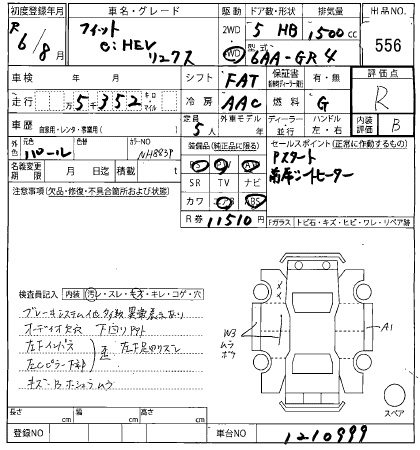 初度登録年月 車名・グレード 駆動 ドア数・形状 排気量 出品NO.
R 6/8月 フィット e:HEV リュクス 2WD 4WD 5 HB 1500cc 556
型式 6AA-GR4
車検 年 月 シフト FAT 保証書 有・無 評価点 R
走行 万 5千 352 キロ マイル 冷房 AAC 燃料 G
車歴 自家用・レンタ・事業用( ) 定員 5人 外車モデル 年 ディーラー 並行 ハンドル 左・右 内装評価 B
外色 元色 パール 色替 カラーNO NH883P
装備品(純正品に限る) PS PW AW SR TV ナビ カワ エアB ABS
セールスポイント(正常に作動するもの)
Pスタート
前席シートヒーター
名義変更期限 月 日迄 積載 t
R券 11510円
注意事項(欠品・修復・不具合箇所および状態)
Fガラス トビ石・キズ・ヒビ・ワレ・リペア跡
検査員記入 内装 汚レ・スレ・キズ・キレ・コゲ・穴
ブレーキシステム他多数異常表示あり
オーディオ欠穴 下廻りサビ
左下インパネ
左Cピラー下部
キズ
W3 ムラ ボケ
A1
スペア
長さ cm 幅 cm 高さ cm
登録NO 車台NO 1210999